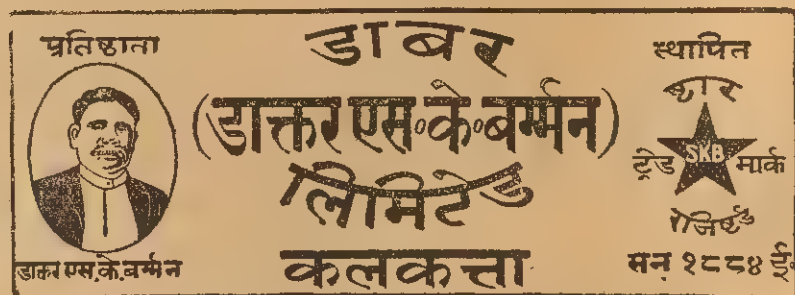 प्रतिष्ठाता
डाक्तर एस.के.बर्म्मन
डाबर
(डाक्तर एस॰के॰बर्म्मन)
लिमिटेड
कलकत्ता
स्थापित
ष्टार
SKB
ट्रेड मार्क
रजिष्टर्ड
सन् १८८४ ई॰